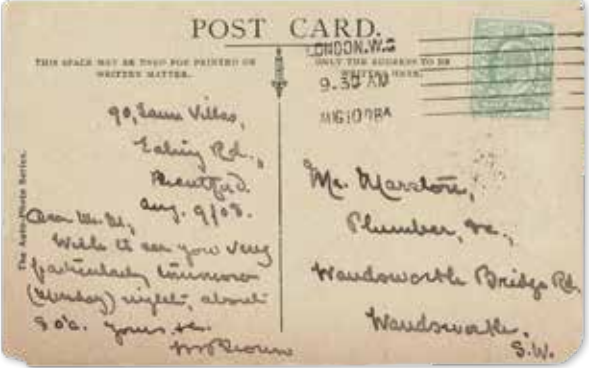 POST CARD.
THIS SPACE MAY BE USED FOR PRINTED OR
WRITTEN MATTER.
ONLY THE ADDRESS TO BE
WRITTEN HERE.
LONDON.W.C
9.30 AM
The Auto-Photo Series.
90, Villas,
Ealing Rd.,
Brentford.
Aug. 9/08.
Dear Mr. M.,
to see you very
particularly tomorrow
(Monday) night, about
8 o'c. Yours, &c.
Mr. Marston,
Plumber, &c.,
Wandsworth Bridge Rd.
Wandsworth.
S.W.